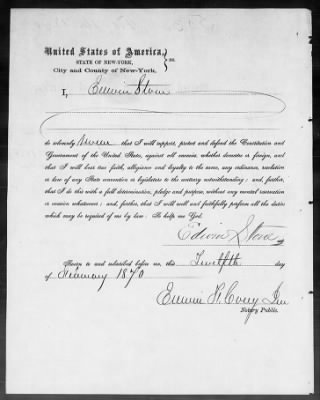 United States of America,
STATE OF NEW-YORK, } ss.
City and County of New-York,
I, Edwin Stone
do solemnly swear that I will support, protect and defend the Constitution and
Government of the United States, against all enemies, whether domestic or foreign, and
that I will bear true faith, allegiance and loyalty to the same, any ordinance, resolution
or law of any State convention or legislature to the contrary notwithstanding; and further,
that I do this with a full determination, pledge and purpose, without any mental reservation
or evasion whatsoever; and, further, that I will well and faithfully perform all the duties
which may be required of me by law. So help me God.
Edwin Stone
Sworn to and subscribed before me, this Twelfth day
of February 1870
Edwin F. Corey Jnr
Notary Public.